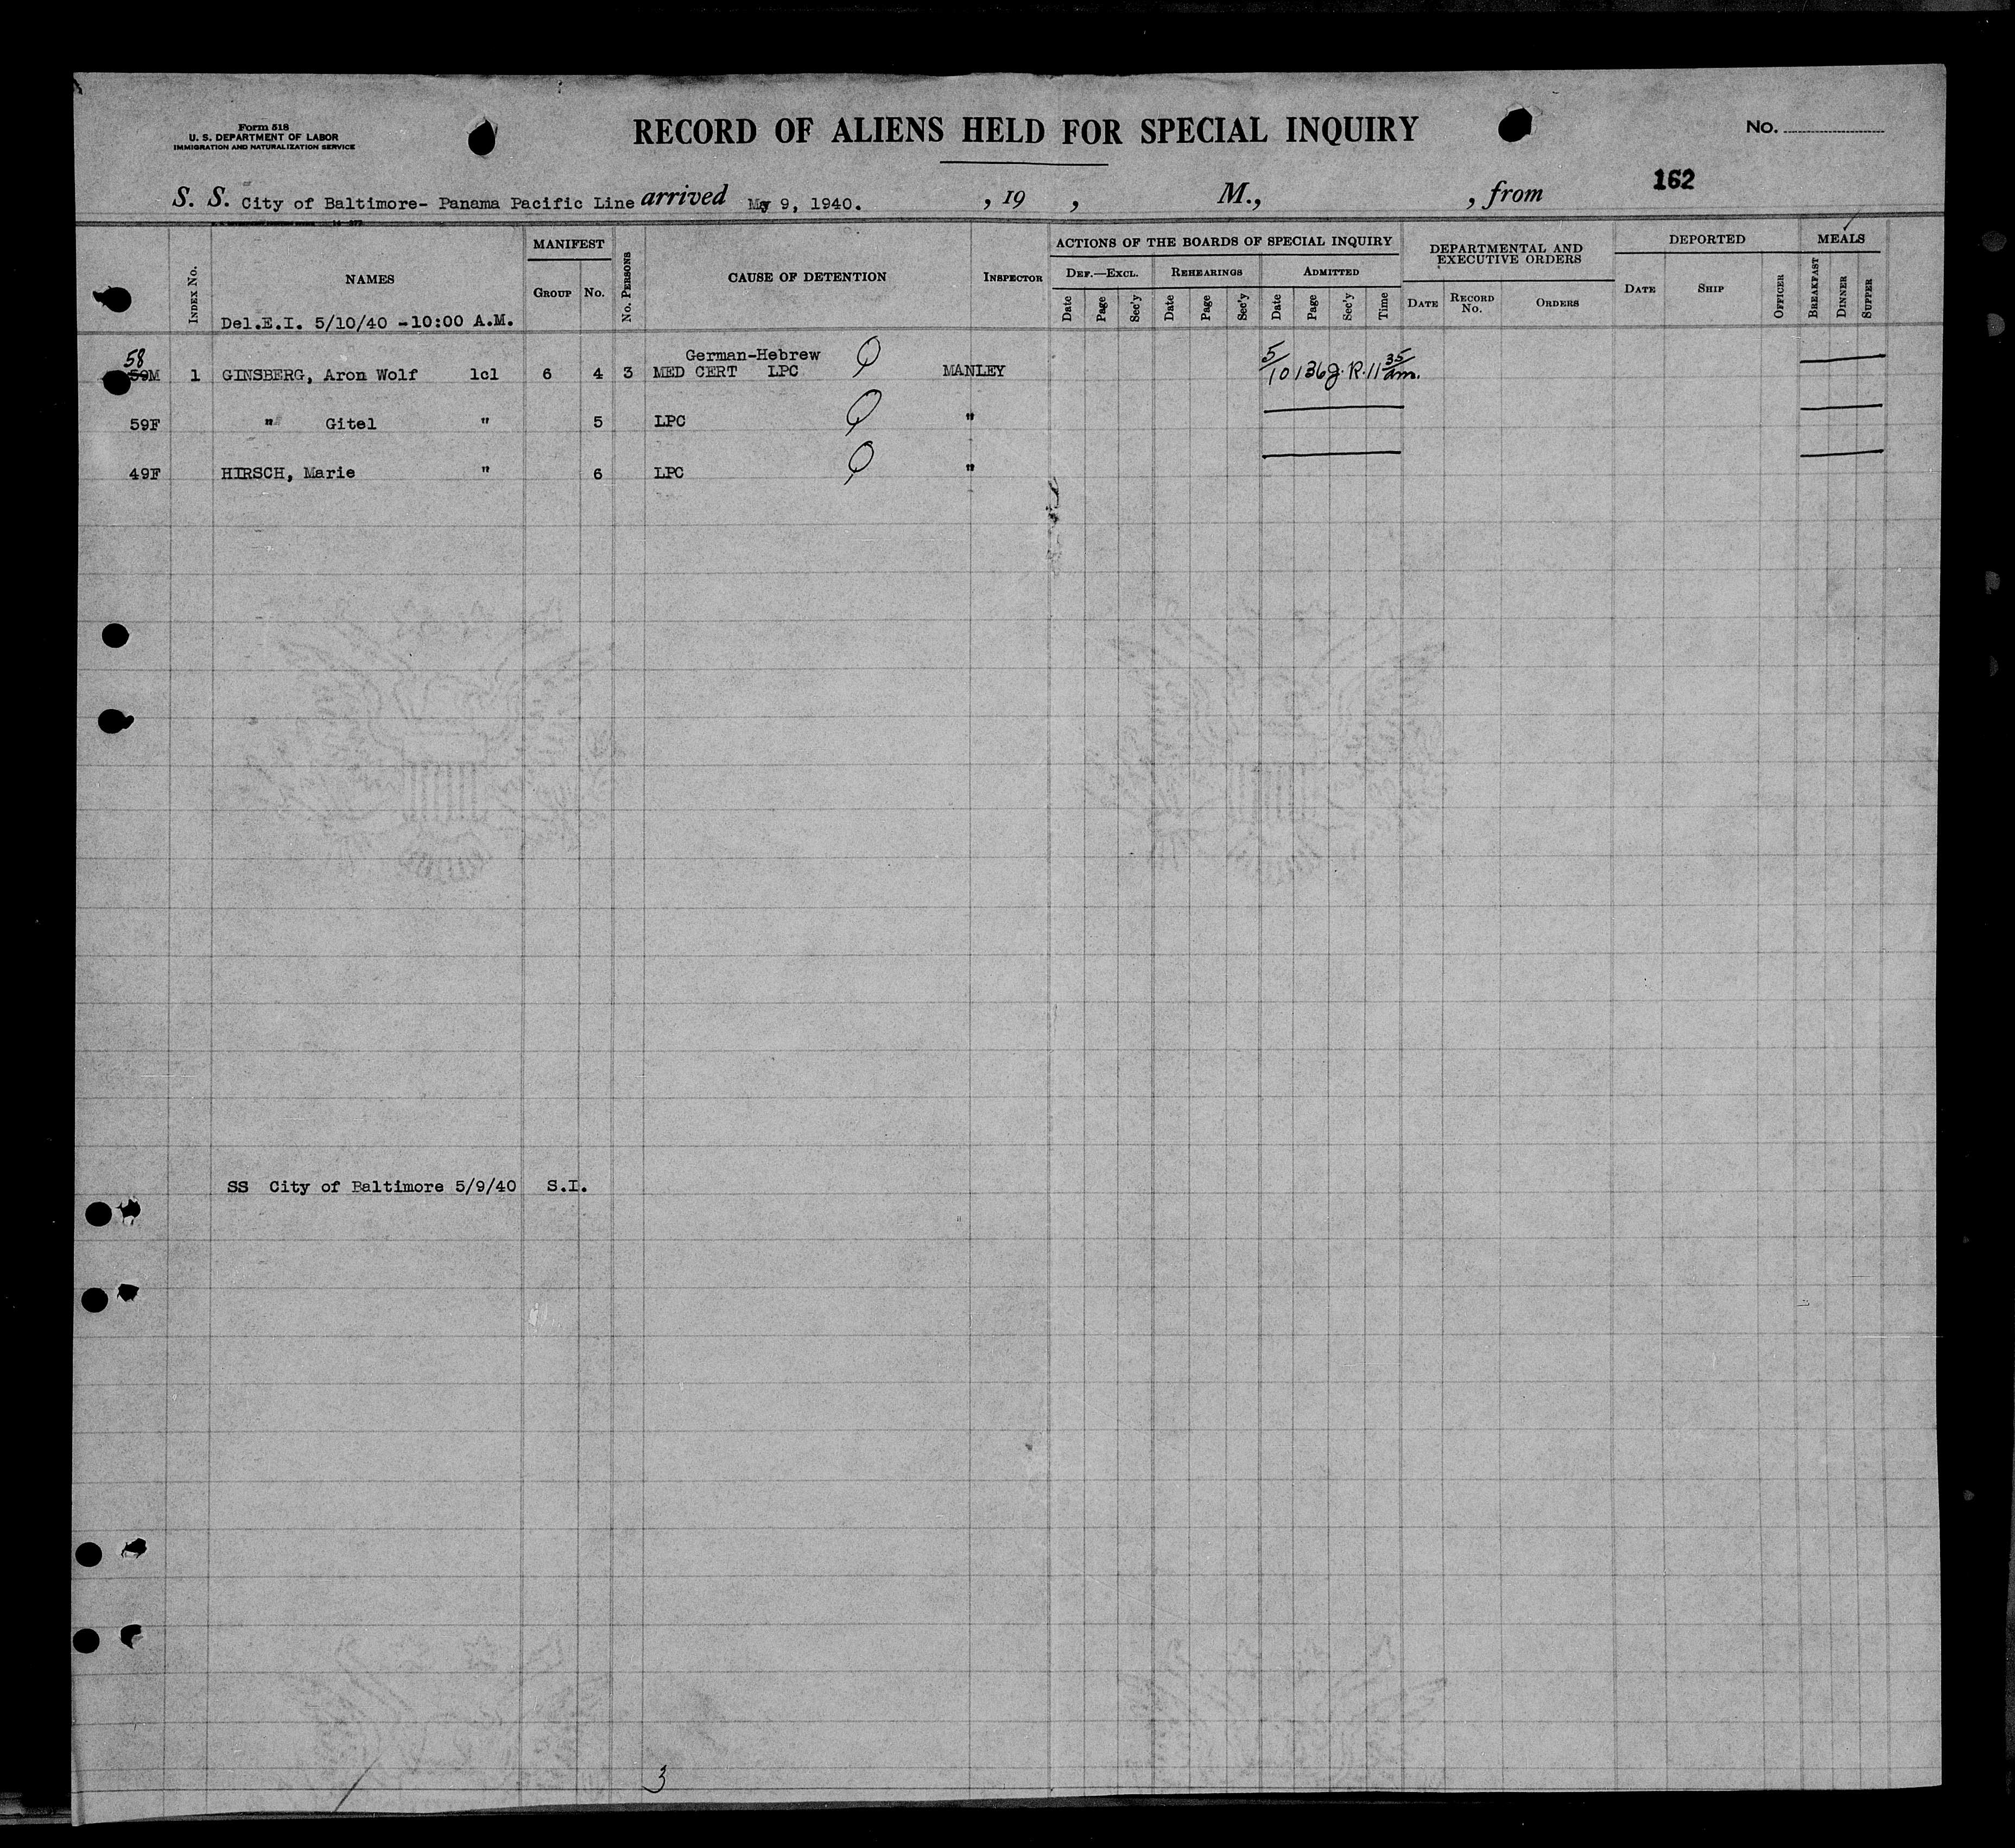 Form 518
U. S. DEPARTMENT OF LABOR
IMMIGRATION AND NATURALIZATION SERVICE
RECORD OF ALIENS HELD FOR SPECIAL INQUIRY
No.
162
S. S. City of Baltimore- Panama Pacific Line arrived May 9, 1940. , 19 , M., , from
Index No.
NAMES
MANIFEST
Group No.
No. Persons
CAUSE OF DETENTION
Inspector
ACTIONS OF THE BOARDS OF SPECIAL INQUIRY
Def.—Excl. Rehearings Admitted
Date Page Sec'y Date Page Sec'y Date Page Sec'y Time
DEPARTMENTAL AND
EXECUTIVE ORDERS
Date Record No. Orders
DEPORTED
Date Ship Officer
MEALS
Breakfast Dinner Supper
Del.E.I. 5/10/40 -10:00 A.M.
German-Hebrew
58
59M 1 GINSBERG, Aron Wolf 1cl 6 4 3 MED CERT LPC MANLEY 5/10 136 J.R. 11 35/am.
59F " Gitel " 5 LPC "
49F HIRSCH, Marie " 6 LPC "
SS City of Baltimore 5/9/40 S.I.
3